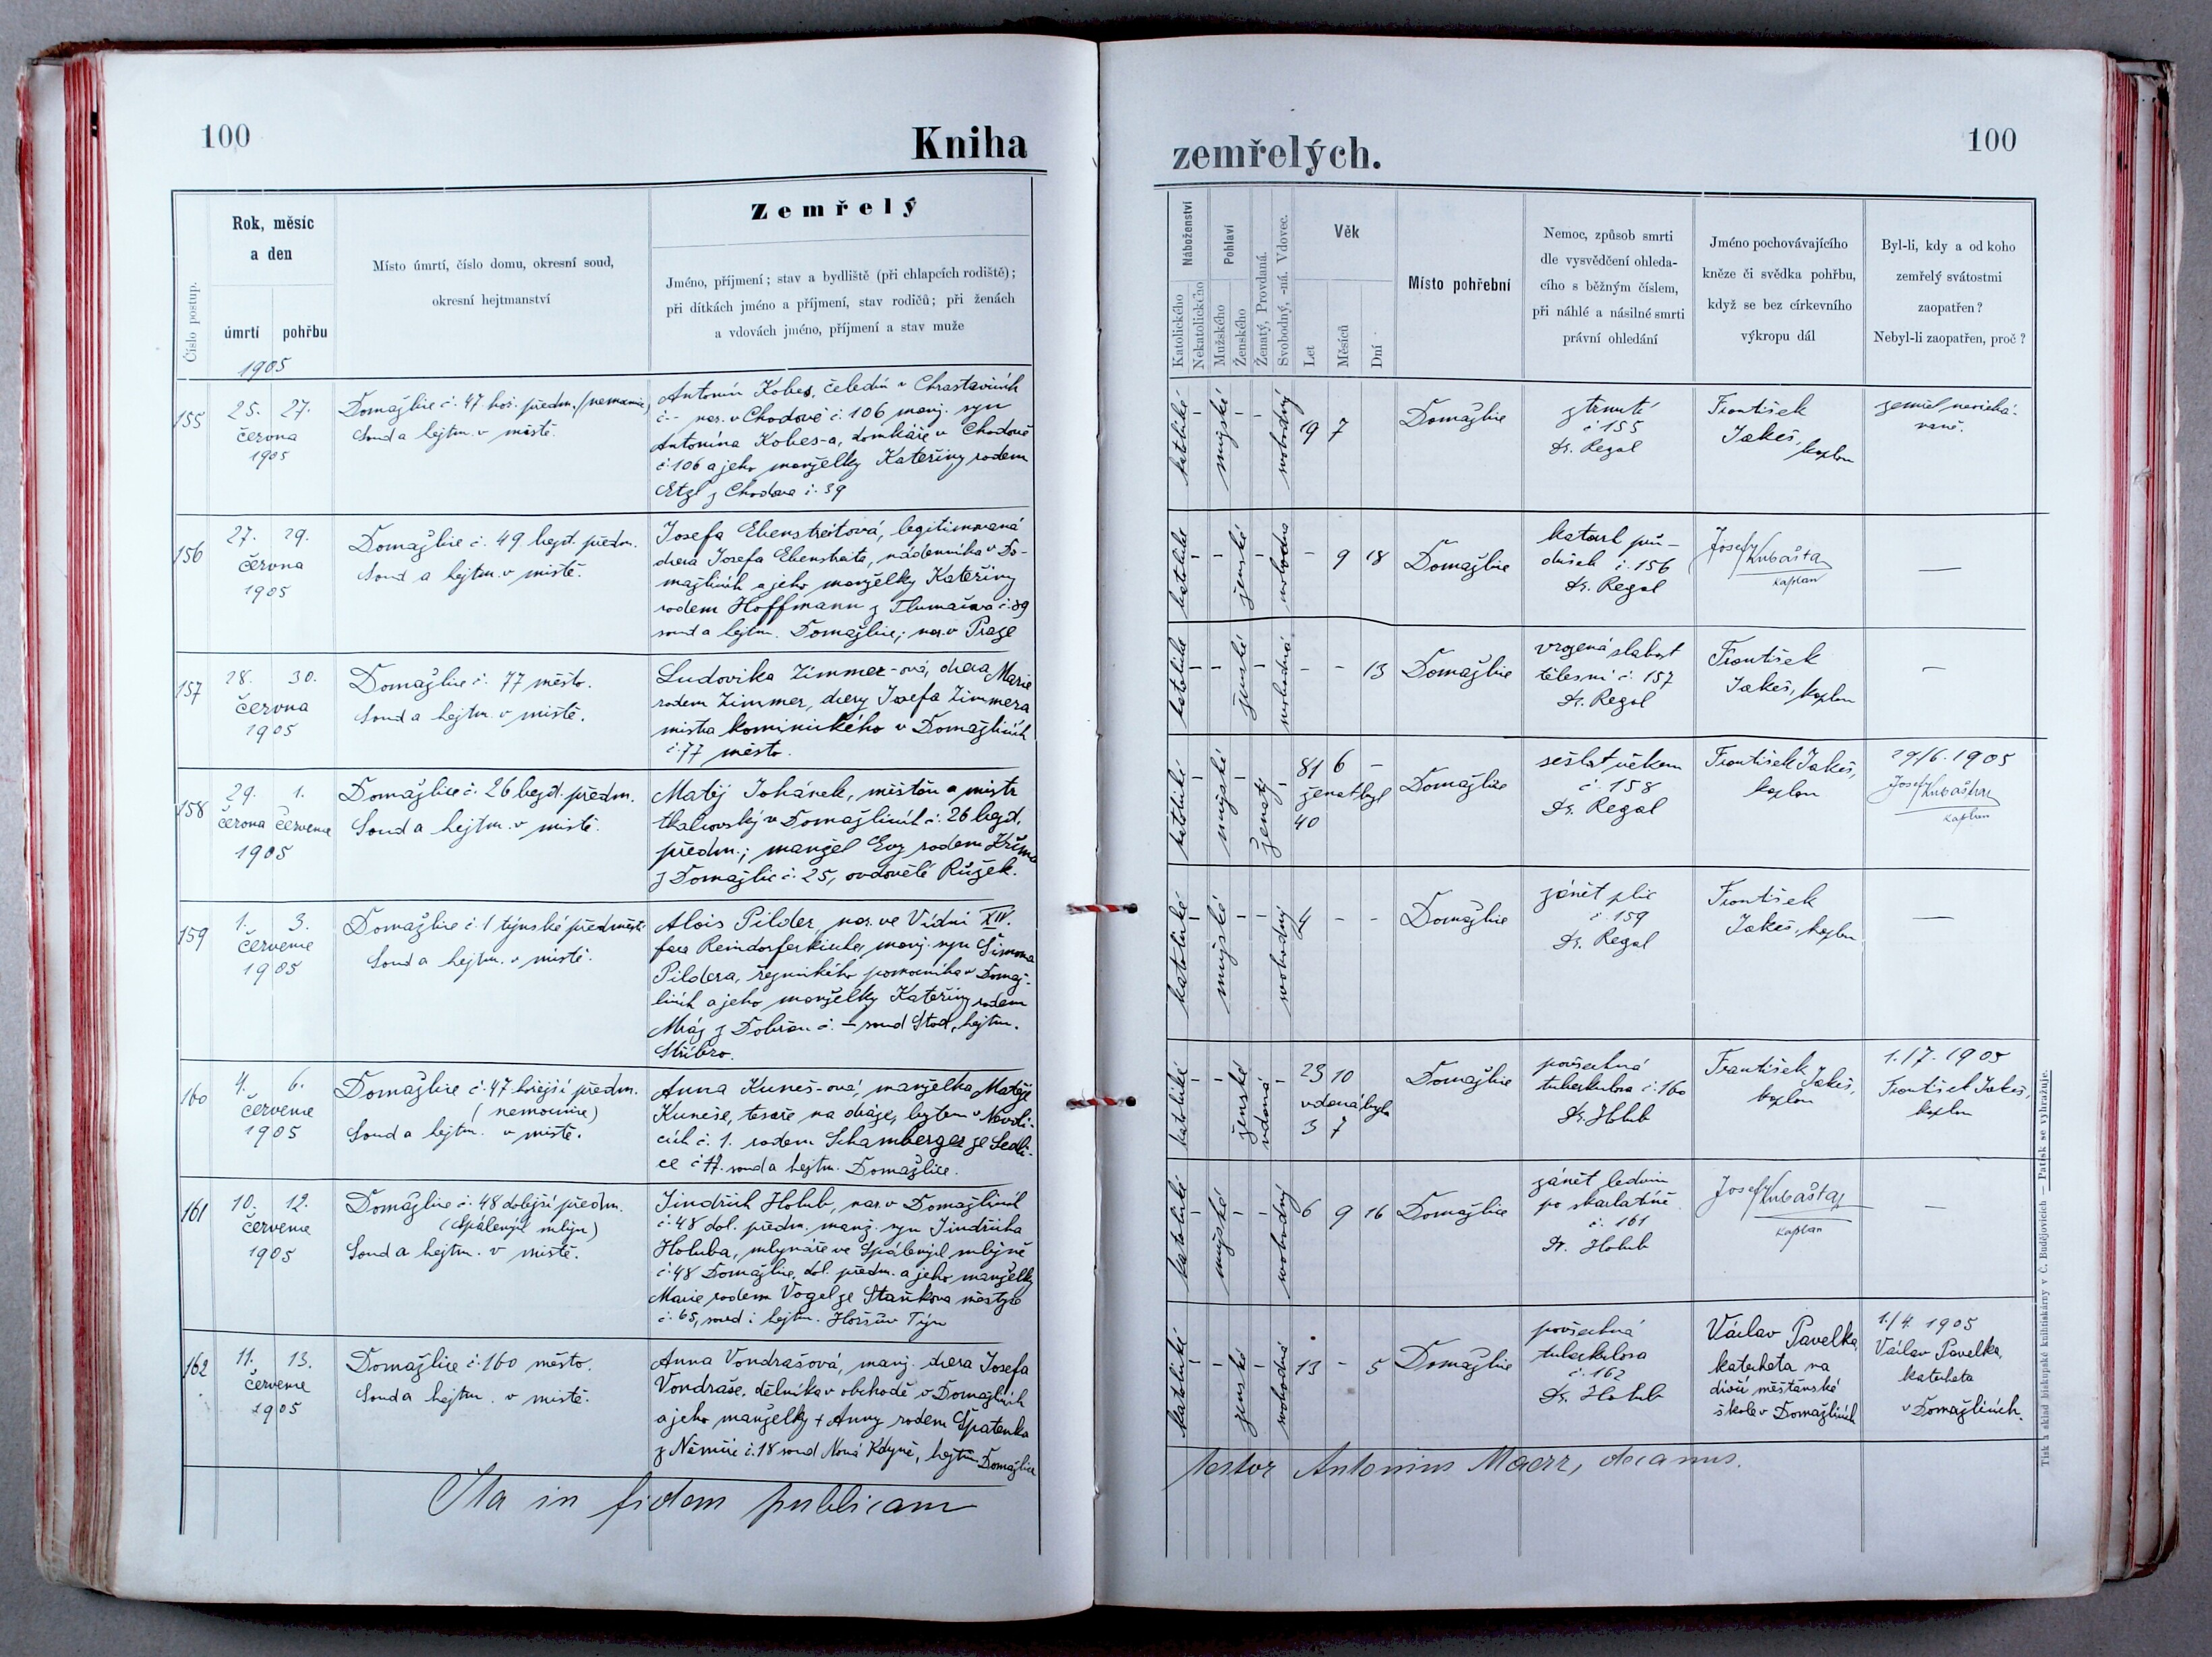 100
Kniha
Číslo postup.
Rok, měsíc
a den
úmrtí
pohřbu
1905
Místo úmrtí, číslo domu, okresní soud,
okresní hejtmanství
Zemřelý
Jméno, příjmení; stav a bydliště (při chlapcích rodiště);
při dítkách jméno a příjmení, stav rodičů; při ženách
a vdovách jméno, příjmení a stav muže
155
25. 27.
června
1905
Domažlice č. 47 hoř. předm. (nemocnice)
Soud a hejtm. v místě.
Antonín Kobes, čeledín v Chrastavicích
č - nar. v Chodově č. 106 manž. syn
Antonína Kobes-a, domkáře v Chodově
č. 106 a jeho manželky Kateřiny rodem
Etzl z Chodova č. 39
156
27. 29.
června
1905
Domažlice č. 49 bezd. předm.
Soud a hejtm. v místě.
Josefa Ebenstreitová, legitimovaná
dcera Josefa Ebenstreita, nádenníka v Do-
mažlicích a jeho manželky Kateřiny
rodem Hoffmann z Tlumačova č. 39
soud a hejtm. Domažlice; nar. v Praze
157
28. 30.
června
1905
Domažlice č. 77 město.
Soud a hejtm. v místě.
Ludovika Zimmer-ová, dcera Marie
rodem Zimmer, dcery Josefa Zimmera
mistra kominického v Domažlicích
č. 77 město.
158
29. 1.
června července
1905
Domažlice č. 26 bezd. předm.
Soud a hejtm. v místě.
Matěj Johánek, měšťan a mistr
tkalcovský v Domažlicích č. 26 bezd.
předm.; manžel Evy rodem
z Domažlic č. 25, ovdovělé Růžek.
159
1. 3.
července
1905
Domažlice č. 1 týnské předměstí
Soud a hejtm. v místě.
Alois Pilder, nar. ve Vídni XIV.
fara Reindorferkirche, manž. syn Šimona
Pildera, řeznického pomocníka v Domaž-
licích a jeho manželky Kateřiny rodem
Mráz z Dobřan č. - soud Stod, hejtm.
Stříbro.
160
4. 6.
července
1905
Domažlice č. 47 hořejší předm.
(nemocnice)
Soud a hejtm. v místě.
Anna Kuneš-ová, manželka Matěje
Kuneše, tesaře na dráze, bytem v Nevoli-
cích č. 1. rodem Schamberger ze Sedli-
ce č 17. soud a hejtm. Domažlice.
161
10. 12.
července
1905
Domažlice č. 48 dolejší předm.
(Spálených mlýn)
Soud a hejtm. v místě.
Jindřich Holub, nar. v Domažlicích
č. 48 dol. předm. manž. syn Jindřicha
Holuba, mlynáře ve Spáleným mlýně
č. 48 Domažlice, dol. předm. a jeho manželky
Marie rodem Vogel ze Staňkova městyse
č. 65, soud i hejtm. Horšův Týn
162
11. 13.
července
1905
Domažlice č. 160 město.
Soud a hejtm. v místě.
Anna Vondrašová, manž. dcera Josefa
Vondraše, dělníka v obchodě v Domažlicích
a jeho manželky + Anny rodem Špatenka
z Němčic č. 18 soud Nová Kdyně, hejtm. Domažlice
Ita in fidem publicam
zemřelých.
100
Náboženství
Katolického
Nekatolického
Pohlaví
Mužského
Ženského
Ženatý, Provdaná.
Svobodný, -ná. Vdovec.
Věk
Let
Měsíců
Dní
Místo pohřební
Nemoc, způsob smrti
dle vysvědčení ohleda-
cího s běžným číslem,
při náhlé a násilné smrti
právní ohledání
Jméno pochovávajícího
kněze či svědka pohřbu,
když se bez církevního
výkropu dál
Byl-li, kdy a od koho
zemřelý svátostmi
zaopatřen?
Nebyl-li zaopatřen, proč?
katolické - mužské - - svobodný
19 7
Domažlice
ztrnutí
č 155
Dr. Regal
František
Jakeš, kaplan
zemřel neočeká-
vaně.
katolické - - ženské - svobodna
- 9 18
Domažlice
katarh prů-
dušek č. 156
Dr. Regal
Josef Kubašta
kaplan
—
katolické - - ženské - svobodná
- - 13
Domažlice
vrozená slabost
tělesní č. 157
Dr. Regal
František
Jakeš, kaplan
—
katolické - mužské - ženatý -
81 6 -
ženat byl
40
Domažlice
sešlost věkem
č. 158
Dr. Regal
František Jakeš,
kaplan
29/6. 1905
Josef Kubašta
kaplan
katolické - mužské - - svobodný
4 - -
Domažlice
zánět plic
č. 159
Dr. Regal
František
Jakeš, kaplan
—
katolické - - ženské vdaná -
23 10
vdaná byla
3 7
Domažlice
povšechná
tuberkulosa č. 160
Dr. Holub
František Jakeš,
kaplan
1./7. 1905
František Jakeš,
kaplan
katolické - mužské - - svobodný
6 9 16
Domažlice
zánět ledvin
po skarlatině
č. 161
Dr. Holub
Josef Kubašta
kaplan
—
katolické - - ženské - svobodná
13 - 5
Domažlice
povšechná
tuberkulosa
č. 162
Dr. Holub
Václav Pavelka
katecheta na
dívčí měšťanské
škole v Domažlicích
1./4. 1905
Václav Pavelka,
katecheta
v Domažlicích.
testor Antonius Maerz, decanus.
Tisk a sklad biskupské knihtiskárny v Č. Budějovicích — Patisk se vyhrazuje.